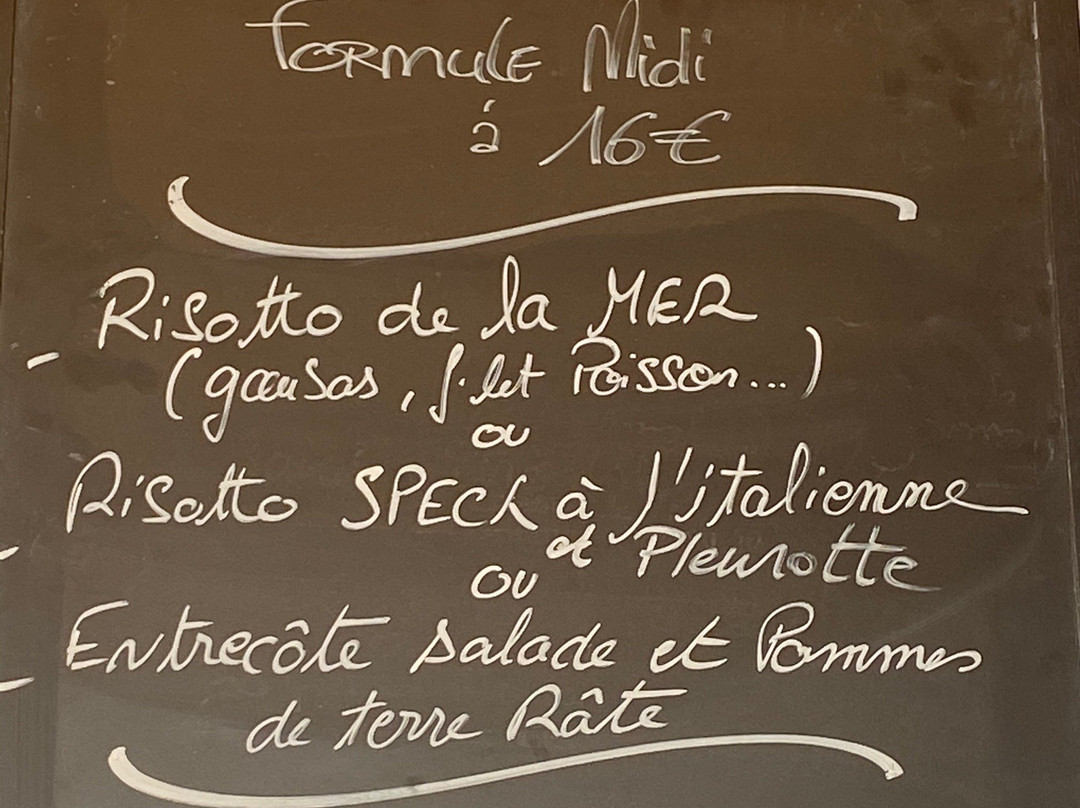 FORMULE Midi
à 16€
- Risotto de la MER
(gambas, filet Poisson...)
ou
- Risotto SPECK à l'italienne
et Pleurotte
ou
- Entrecôte salade et Pommes
de terre Râte